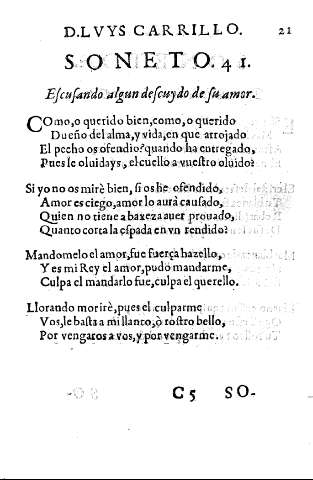 D. LVYS CARRILLO. 21
SONETO. 41.
Escusando algun descuydo de su amor.
COmo, o querido bien, como, o querido
Dueño del alma, y vida, en que arrojado
El pecho os ofendio? quando ha entregado,
Pues le oluidays, el cuello a vuestro oluido?
Si yo no os mirè bien, si os he ofendido,
Amor es ciego, amor lo aurà causado,
Quien no tiene a baxeza auer prouado,
Quanto corta la espada en vn rendido?
Mandomelo el amor, fue fuerça hazello,
Y es mi Rey el amor, pudo mandarme,
Culpa el mandarlo fue, culpa el querello.
Llorando morirè, pues el culparme
Vos, le basta a mi llanto, ò rostro bello,
Por vengaros a vos, y por vengarme.
C5 SO-